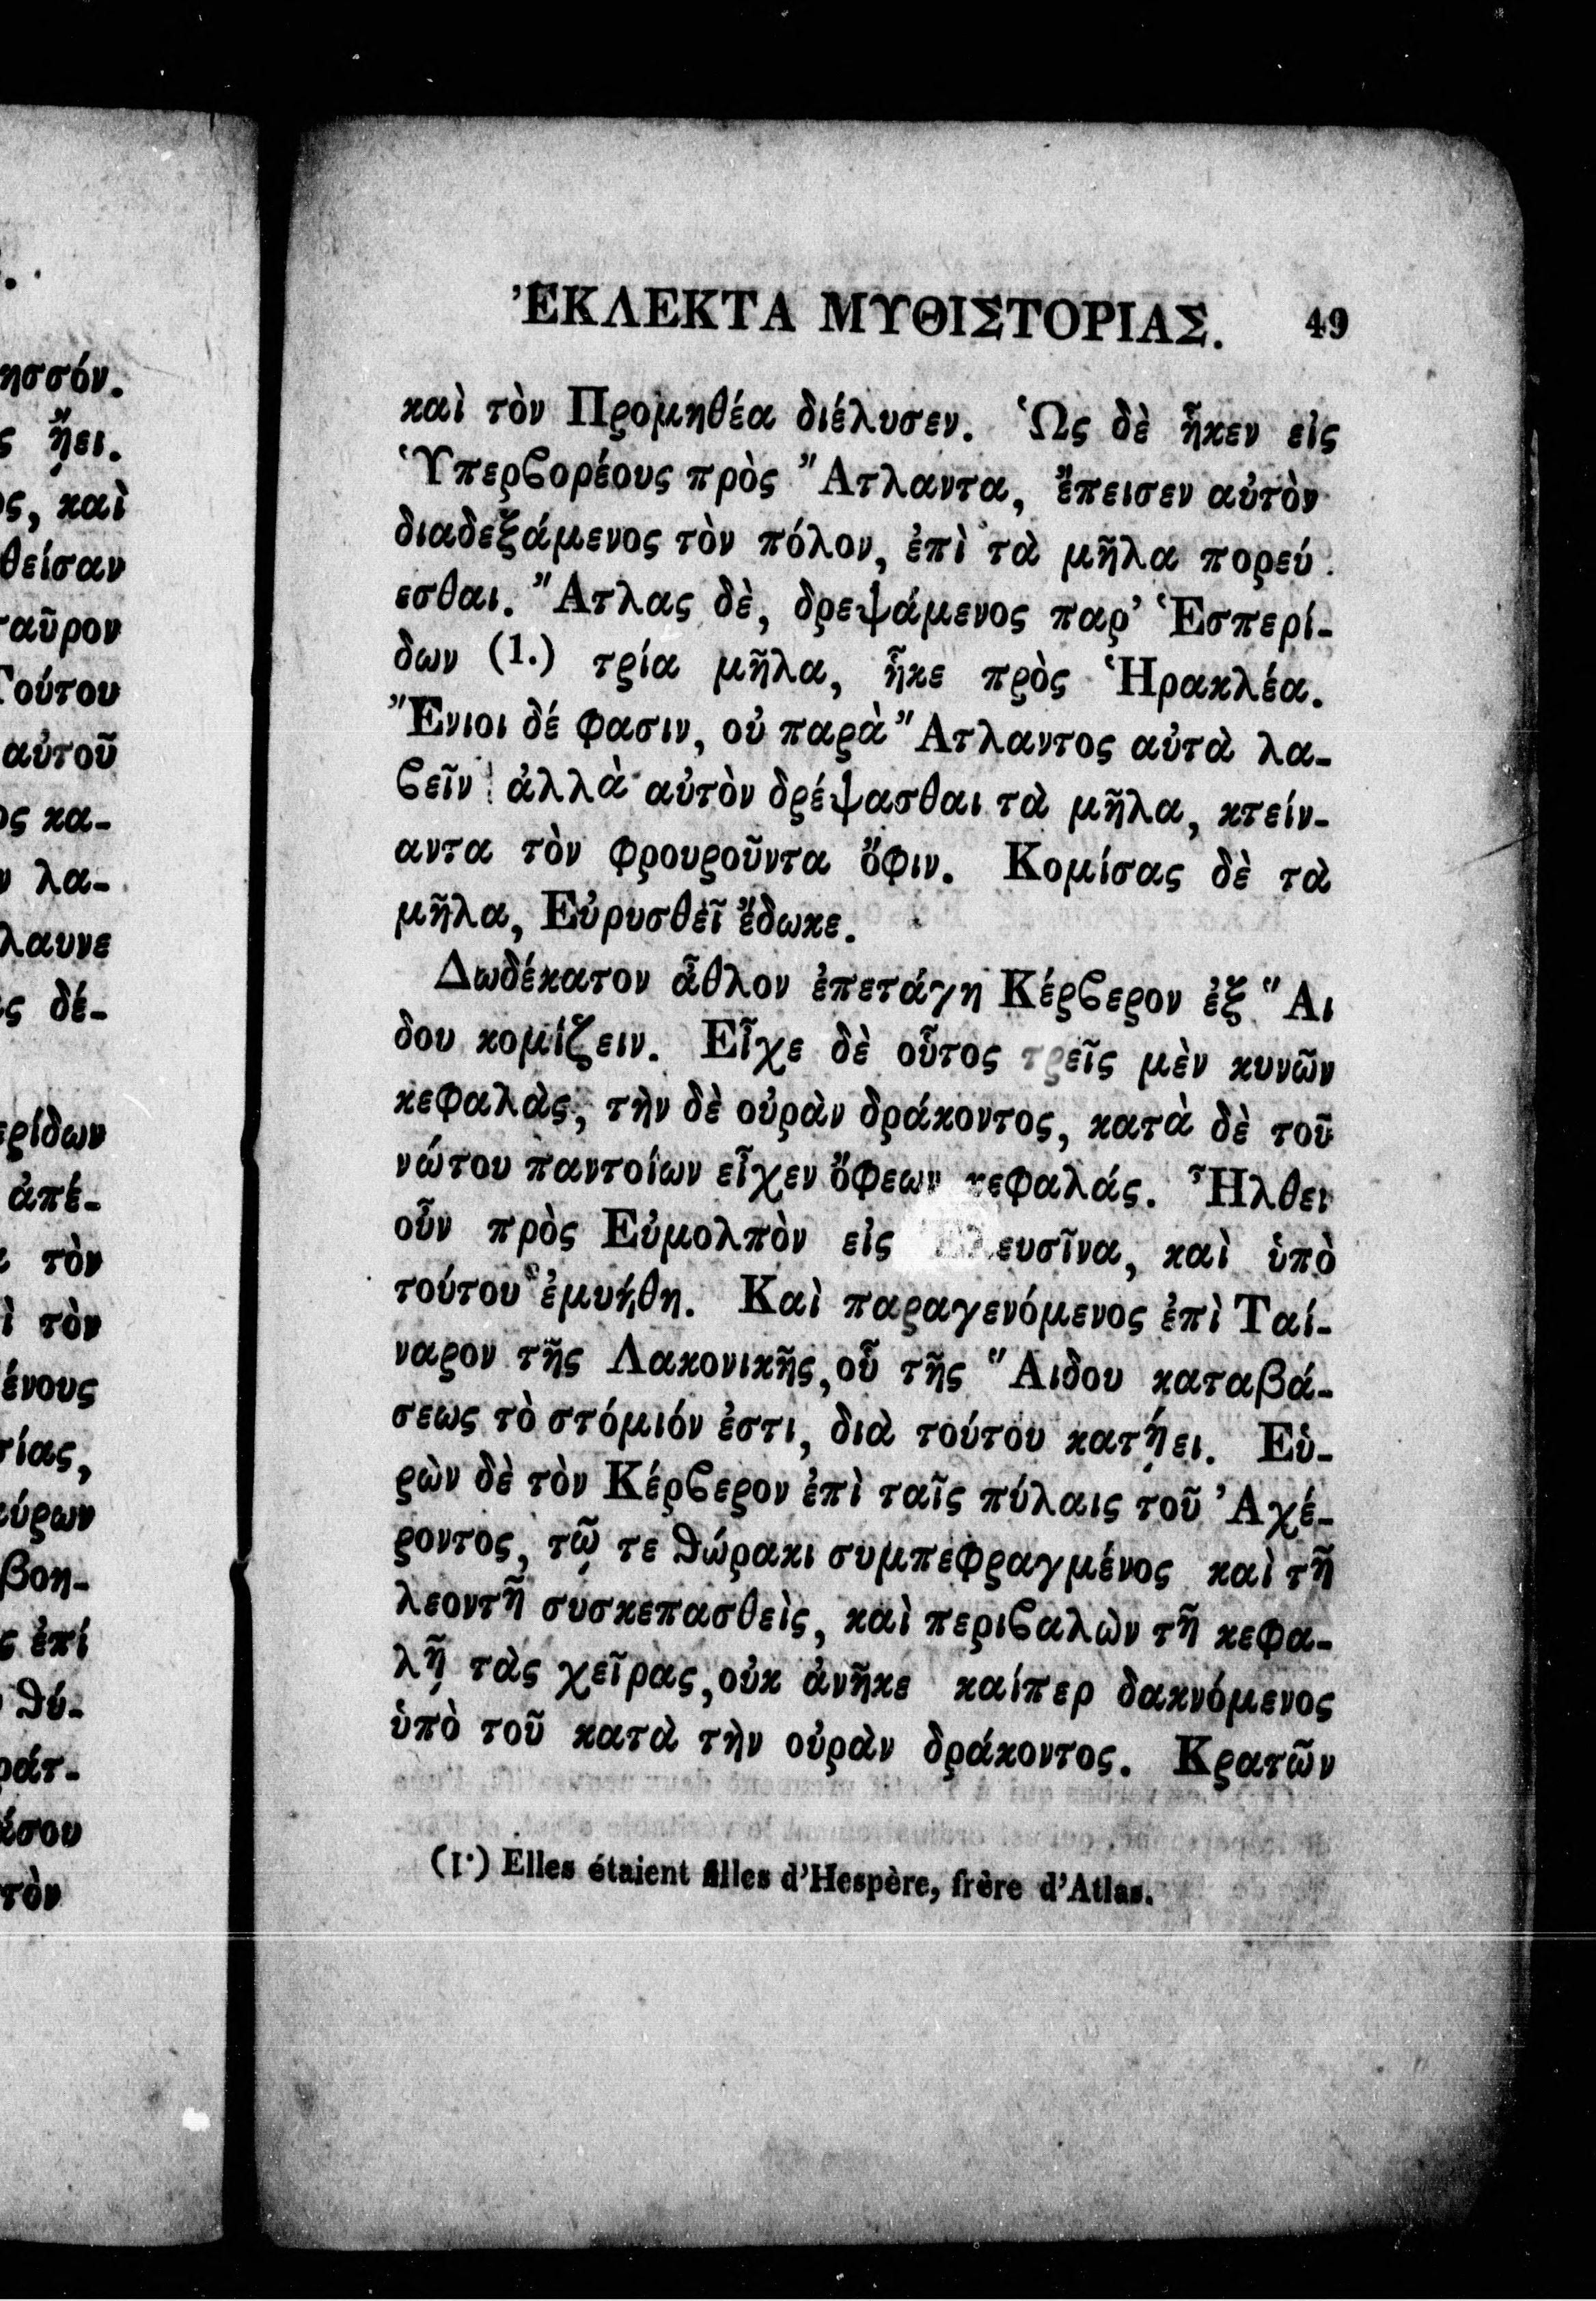 ησσόν.
ς ᾔει.
ος, καὶ
θείσαν
ταῦρον
Τούτου
αὐτοῦ
ος κα-
λα-
λαυνε
ς δέ-
ερίδων
ἀπέ-
τὸν
ὶ τὸν
ένους
τίας,
ύρων
βοη-
ς ἐπί
θύ-
ράτ-
άσου
τὸν
ἘΚΛΕΚΤΑ ΜΥΘΙΣΤΟΡΙΑΣ. 49
καὶ τὸν Προμηθέα διέλυσεν. Ὡς δὲ ἧκεν εἰς
Ὑπερϐορέους πρὸς Ἄτλαντα, ἔπεισεν αὐτὸν
διαδεξάμενος τὸν πόλον, ἐπὶ τὰ μῆλα πορεύ
εσθαι. Ἄτλας δὲ, δρεψάμενος παρ’ Ἑσπερί-
δων (1.) τρία μῆλα, ἧκε πρὸς Ἡρακλέα.
Ἔνιοι δέ φασιν, οὐ παρὰ Ἄτλαντος αὐτὰ λα-
ϐεῖν ἀλλὰ αὐτὸν δρέψασθαι τὰ μῆλα, κτείν-
αντα τὸν φρουροῦντα ὄφιν. Κομίσας δὲ τὰ
μῆλα, Εὐρυσθεῖ ἔδωκε.
Δωδέκατον ἆθλον ἐπετάγη Κέρϐερον ἐξ Ἅι
δου κομίζειν. Εἶχε δὲ οὗτος τρεῖς μὲν κυνῶν
κεφαλὰς, τὴν δὲ οὐρὰν δράκοντος, κατὰ δὲ τοῦ
νώτου παντοίων εἶχεν ὄφεων κεφαλάς. Ἦλθει
οὖν πρὸς Εὐμολπὸν εἰς Ἐλευσῖνα, καὶ ὑπὸ
τούτου ἐμυήθη. Καὶ παραγενόμενος ἐπὶ Ταί-
ναρον τῆς Λακονικῆς, οὗ τῆς Ἅιδου καταβά-
σεως τὸ στόμιόν ἐστι, διὰ τούτου κατῄει. Εὑ-
ρὼν δὲ τὸν Κέρϐερον ἐπὶ ταῖς πύλαις τοῦ Ἀχέ-
ροντος, τῷ τε θώρακι συμπεφραγμένος καὶ τῆ
λεοντῆ συσκεπασθεὶς, καὶ περιϐαλὼν τῆ κεφα-
λῇ τὰς χεῖρας, οὐκ ἀνῆκε καίπερ δακνόμενος
ὑπὸ τοῦ κατὰ τὴν οὐρὰν δράκοντος. Κρατῶν
(1.) Elles étaient filles d’Hespère, frère d’Atlas.